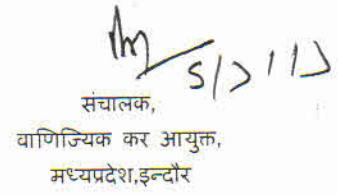 संचालक,
वाणिज्यिक कर आयुक्त,
मध्यप्रदेश,इन्दौर